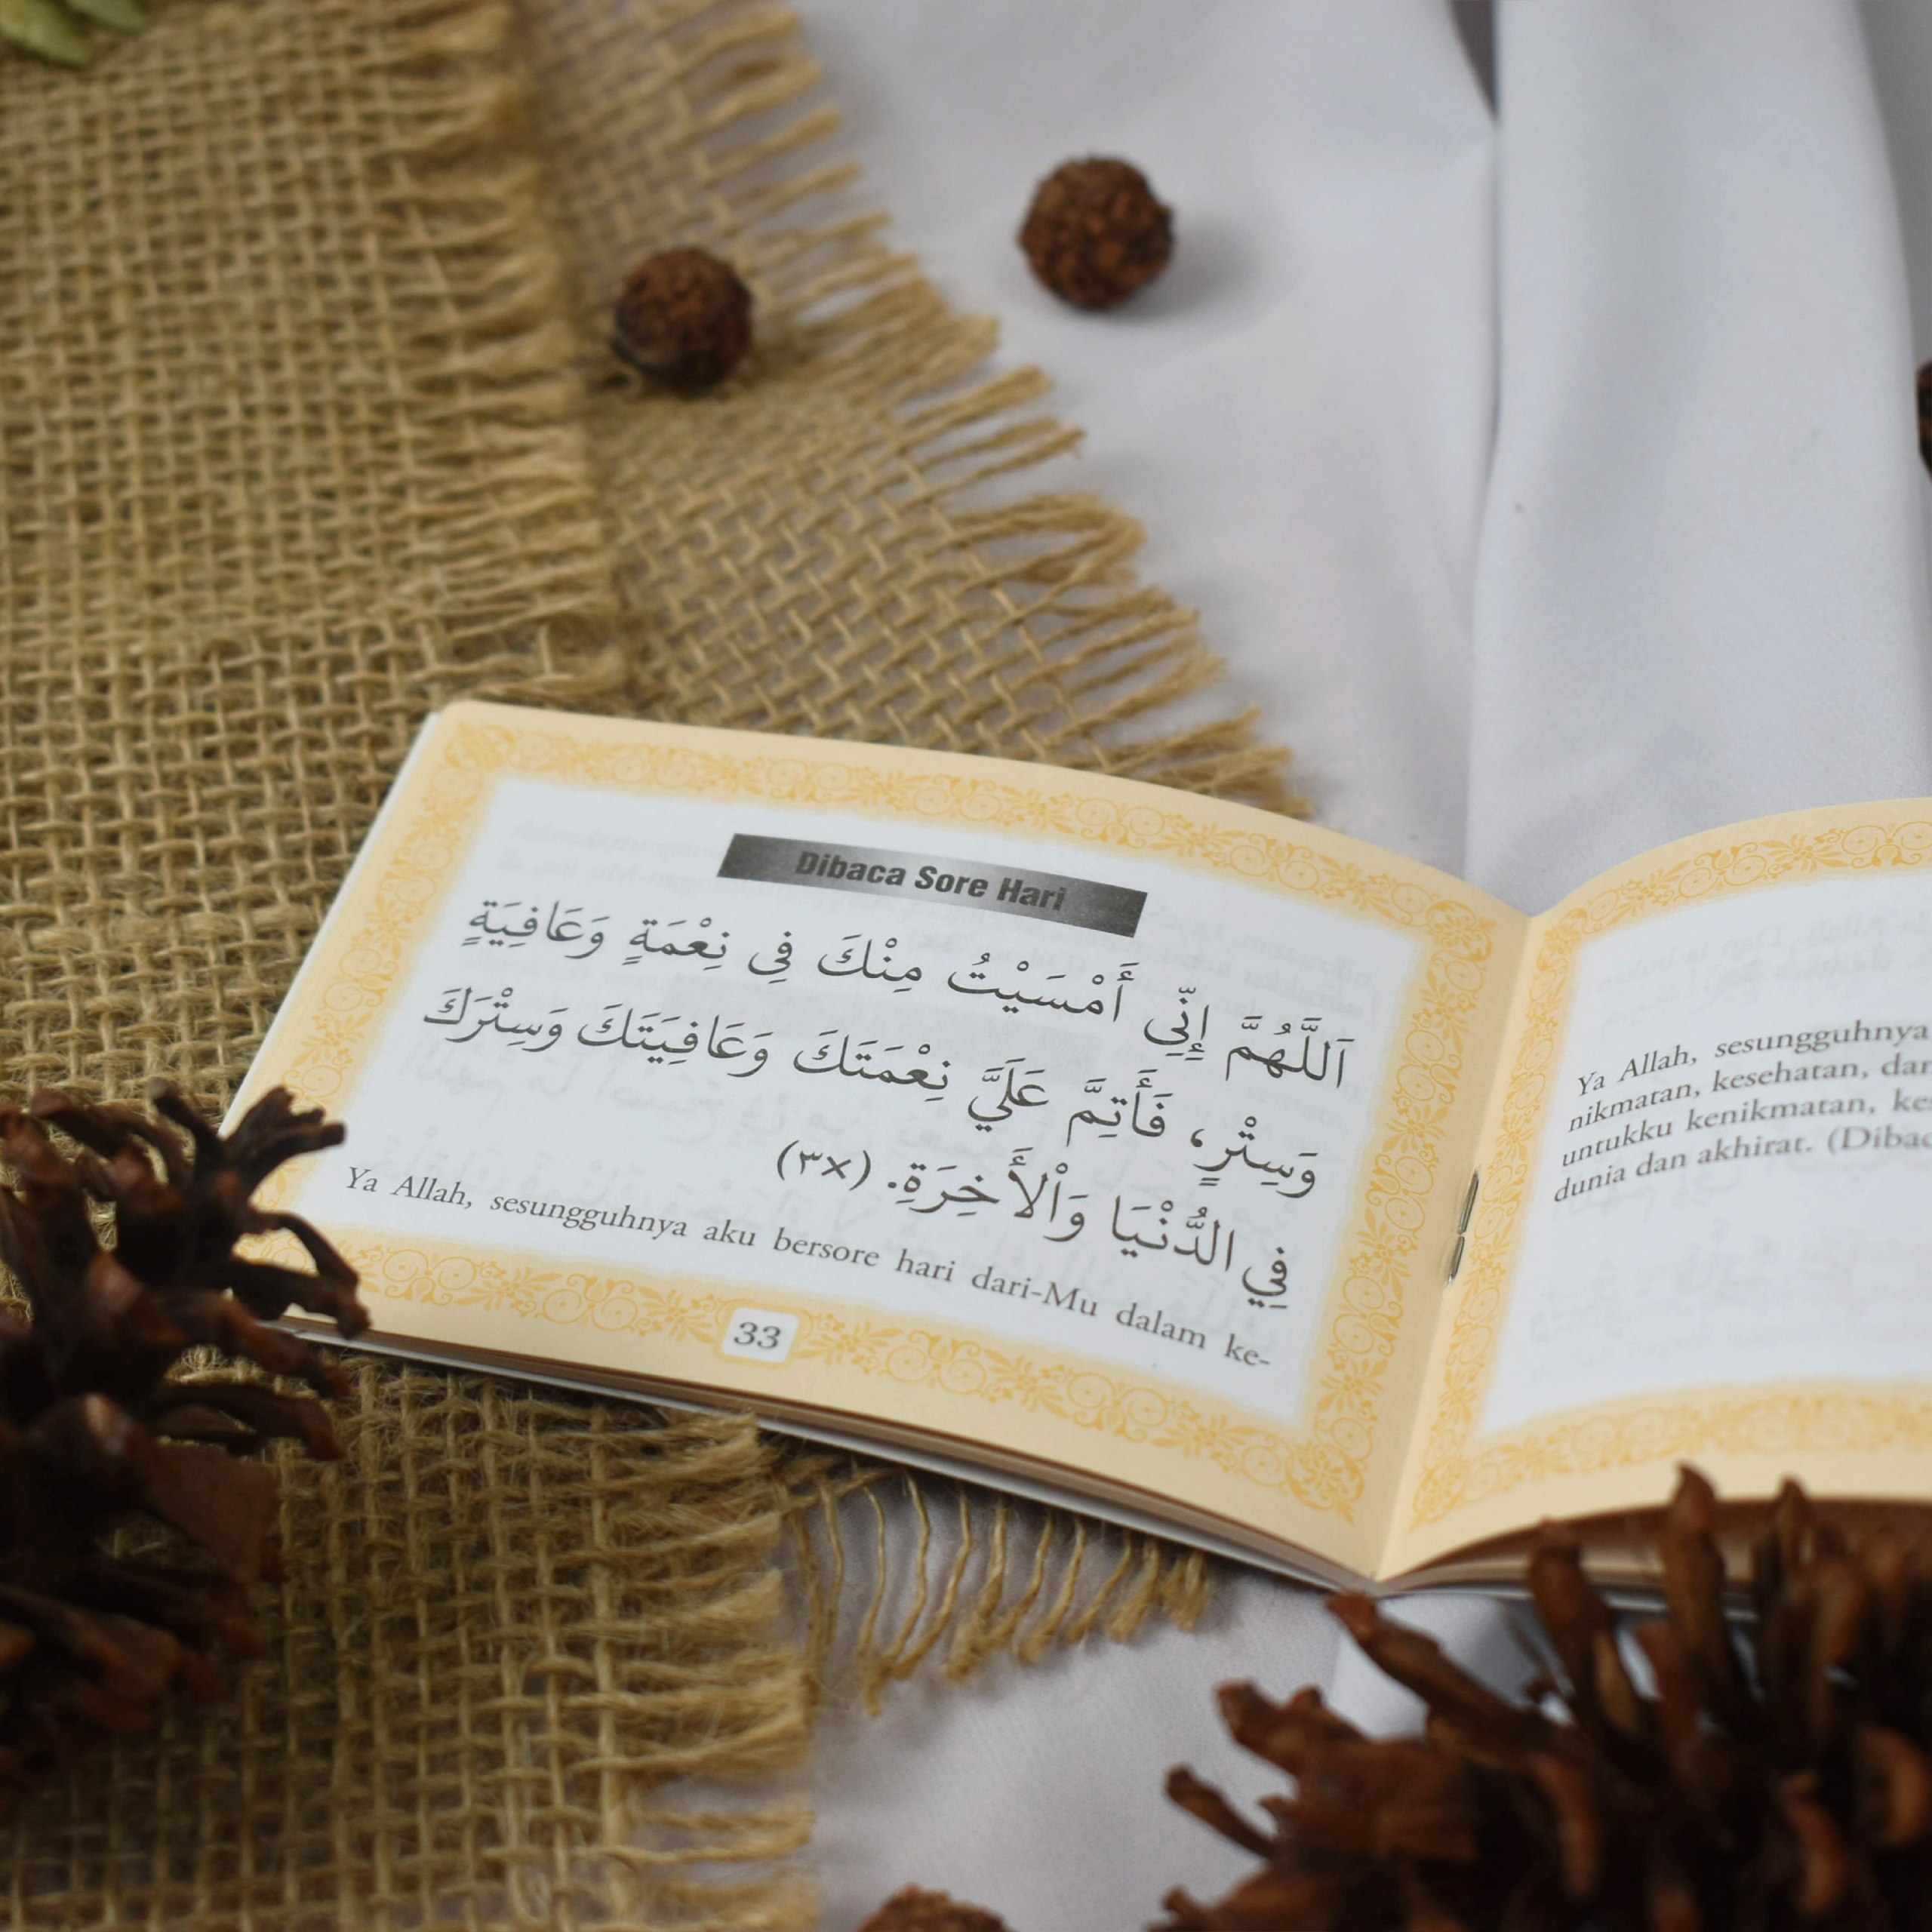 Dibaca Sore Hari
اَللَّهُمَّ إِنِّي أَمْسَيْتُ مِنْكَ فِي نِعْمَةٍ وَعَافِيَةٍ
وَسِتْرٍ، فَأَتِمَّ عَلَيَّ نِعْمَتَكَ وَعَافِيَتَكَ وَسِتْرَكَ
فِي الدُّنْيَا وَاْلأَخِرَةِ. (٣×)
Ya Allah, sesungguhnya aku bersore hari dari-Mu dalam ke-
33
Ya Allah, sesungguhnya
nikmatan, kesehatan, dan
untukku kenikmatan, kes
dunia dan akhirat. (Dibac